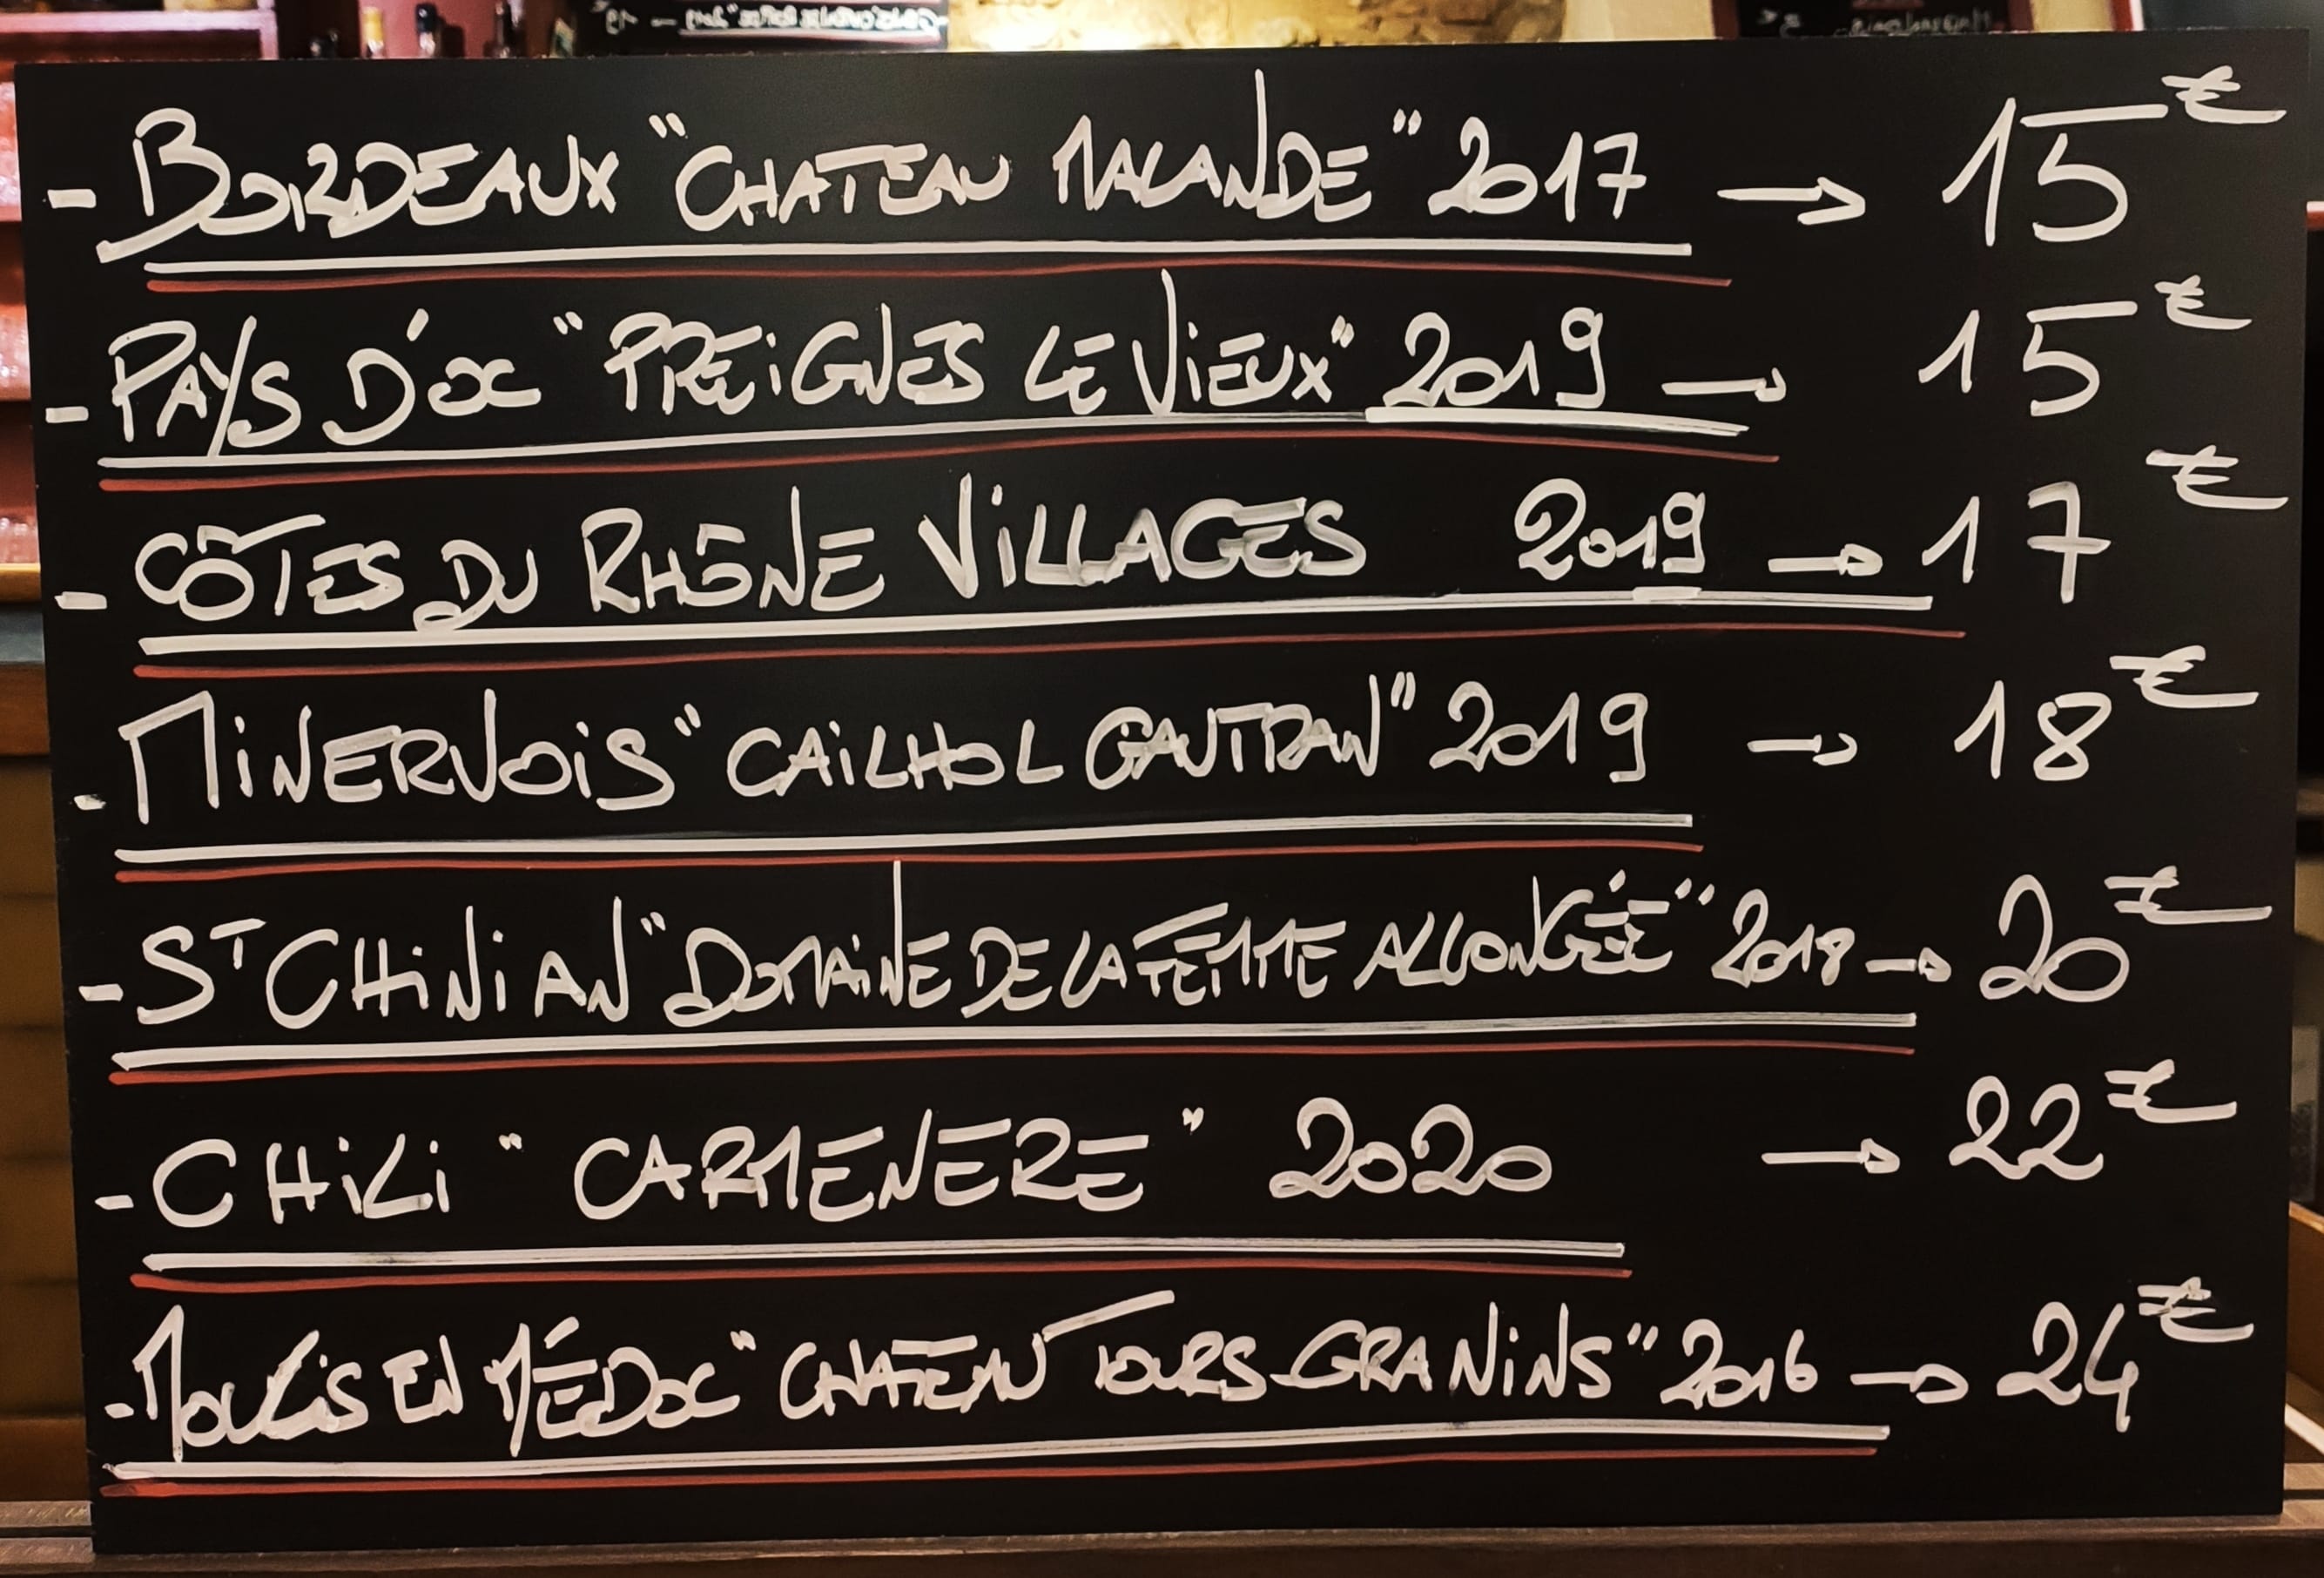 - BORDEAUX "CHATEAU MALANDE" 2017 → 15€
- PAYS D'OC "PREIGNES LE VIEUX" 2019 → 15€
- CÔTES DU RHÔNE VILLAGES 2019 → 17€
- MINERVOIS "CAILHOL GAUTRAN" 2019 → 18€
- ST CHINIAN "DOMAINE DE LA FEMME ALLONGÉE" 2018 → 20€
- CHILI "CARMENERE" 2020 → 22€
- MOULIS EN MÉDOC "CHATEAU TOURS-GRANINS" 2016 → 24€